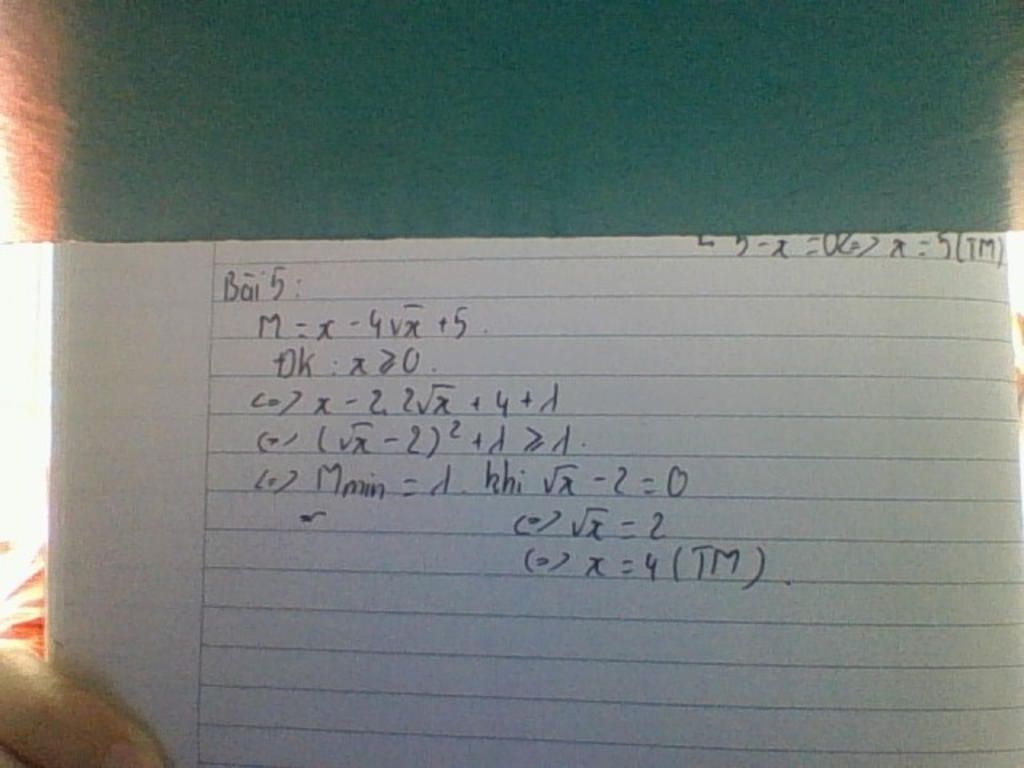 5-x=0<=> x = 5(TM)
Bài 5:
M = x - 4√x + 5.
ĐK : x ≥ 0.
<=> x - 2.2√x + 4 + 1
<=> (√x - 2)² + 1 ≥ 1.
<=> Mmin = 1. khi √x - 2 = 0
<=> √x = 2
<=> x = 4 (TM).